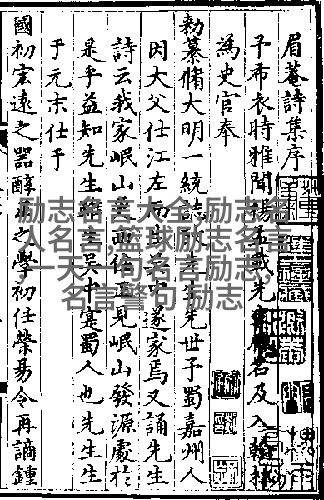 眉菴詩集序
予布衣時雅聞楊孟載先名及入翰林
為史官奉
勅纂脩大明一統誌先世乎蜀嘉州人
因大父仕江左而生中遂家焉又誦先生
詩云我家岷山更西住正見岷山發源處於
是乎益知先生雖吳中寔蜀人也先生生
于元末仕于
國初宏遠之器醇之學初任滎昜令再謫鍾
励志名言大全,励志名
人名言,篮球励志名言
,一天一句名言励志,
名言警句励志